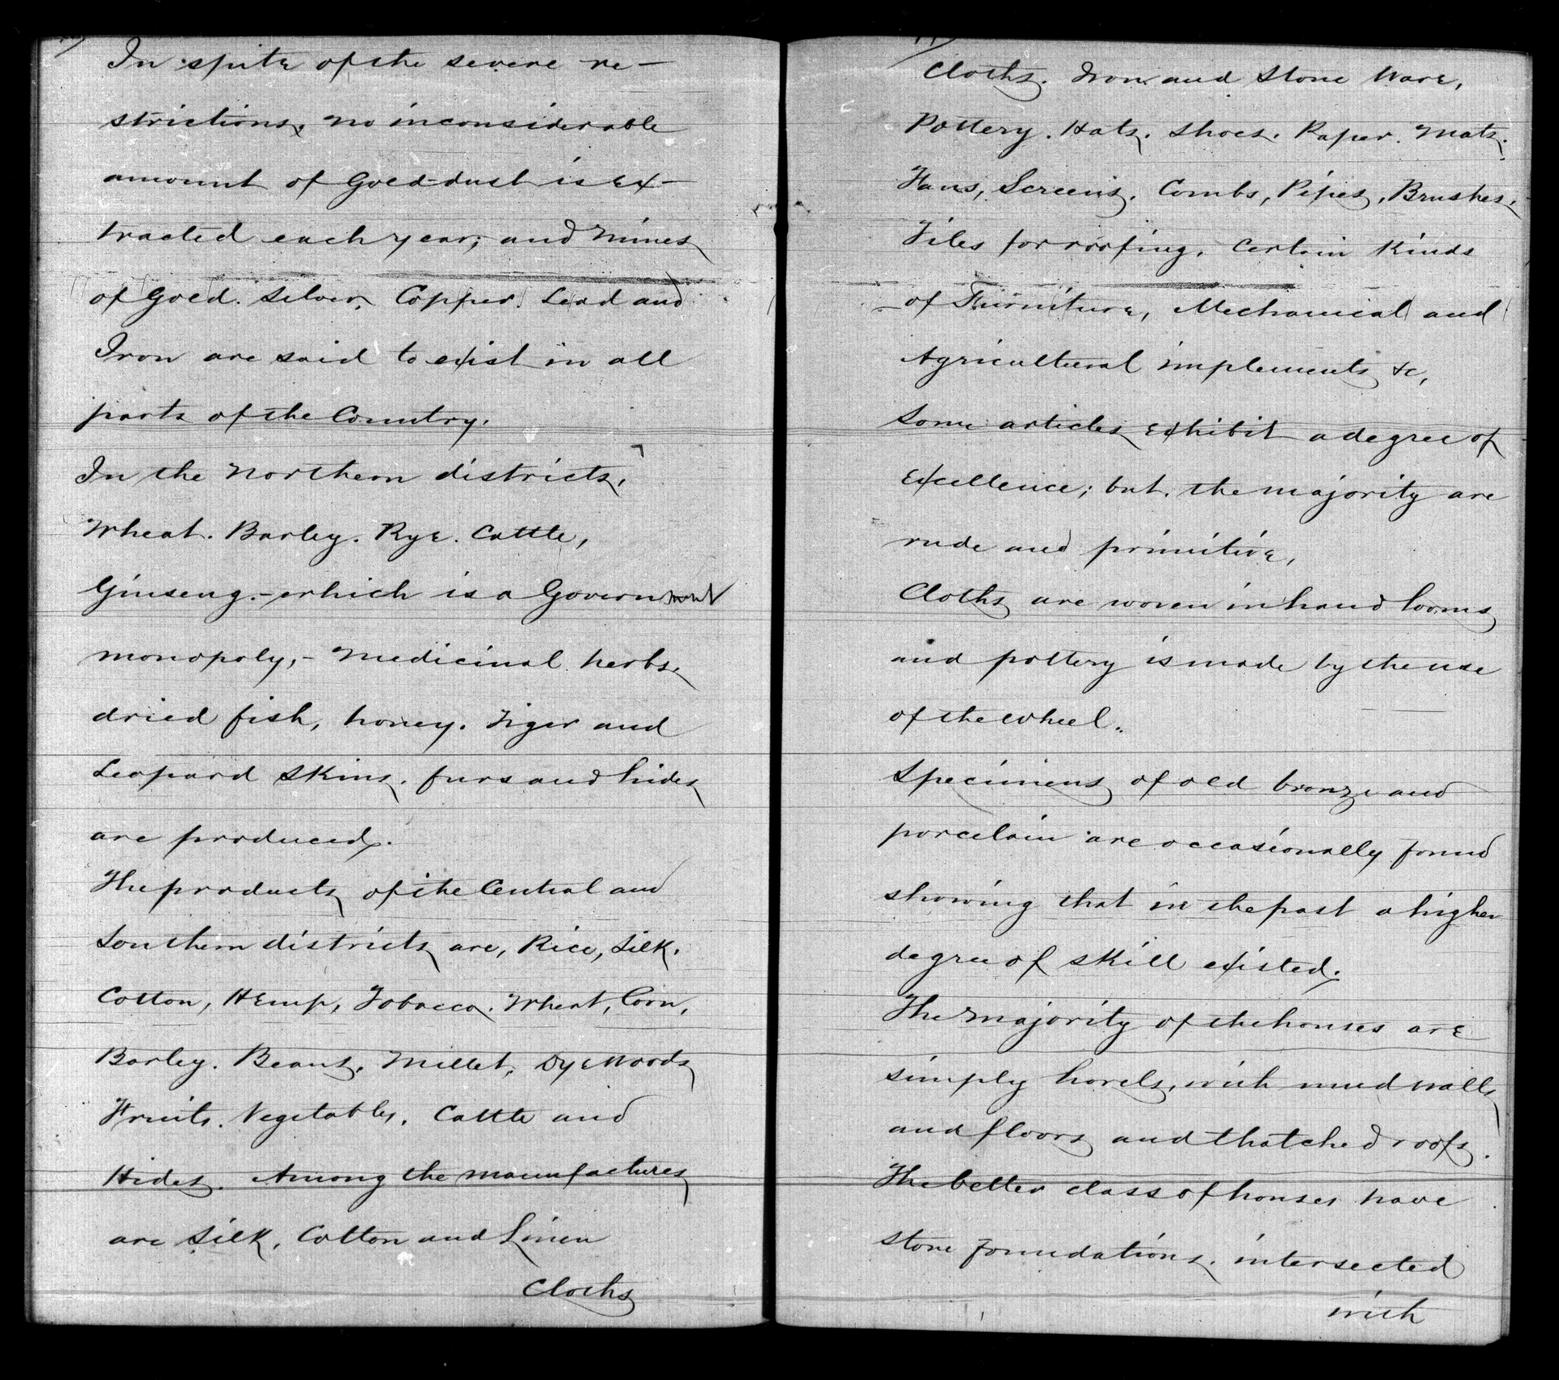 In spite of the severe re-
strictions, no inconsiderable
amount of Gold-dust is ex-
tracted each year; and Mines
of Gold. Silver, Copper. Lead and
Iron are said to exist in all
parts of the Country.
In the Northern districts,
Wheat. Barley. Rye. Cattle,
Ginseng.-which is a Government
monopoly,- Medicinal herbs,
dried fish, honey. Tiger and
Leopard Skins. furs and hides
are produced.
The products of the Central and
Southern districts are, Rice, Silk.
Cotton, Hemp, Tobacco. Wheat, Corn,
Barley. Beans. Millet. Dye Woods
Fruits. Vegetables. Cattle and
Hides. Among the manufactures
are Silk, Cotton and Linen
Cloths
Cloths. Iron and Stone Ware,
Pottery. Hats. Shoes. Paper. Mats.
Fans, Screens. Combs, Pipes, Brushes.
Tiles for roofing, Certain Kinds
of Furniture, Mechanical and
Agricultural implements &c,
Some articles exhibit a degree of
excellence; but the majority are
rude and primitive,
Cloths are woven in hand looms
and pottery is made by the use
of the wheel.
Specimens of old bronze and
porcelain are occasionally found
showing that in the past a higher
degree of skill existed.
The majority of the houses are
simply hovels, with mud walls
and floors and thatched roofs.
The better class of houses have
stone foundations. intersected
with